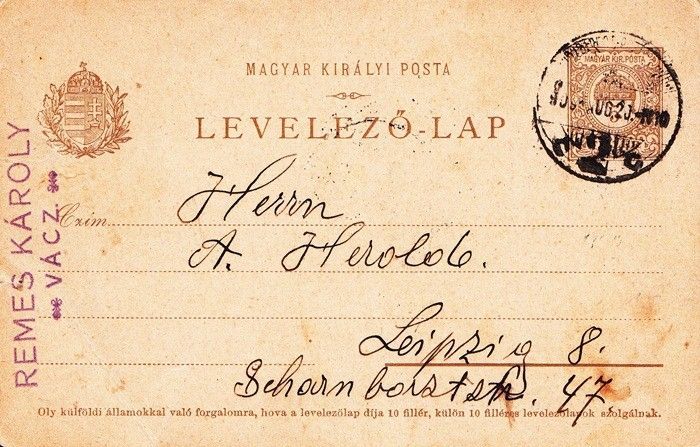 MAGYAR KIRÁLYI POSTA
MAGYAR KIR. POSTA
LEVELEZŐ-LAP
REMES KÁROLY
VÁCZ
Czím:
Herrn
A. Herold.
Leipzig 8.
Scharnhorststr. 47.
Oly külföldi államokkal való forgalomra, hova a levelezőlap díja 10 fillér, külön 10 filléres levelezőlapok szolgálnak.